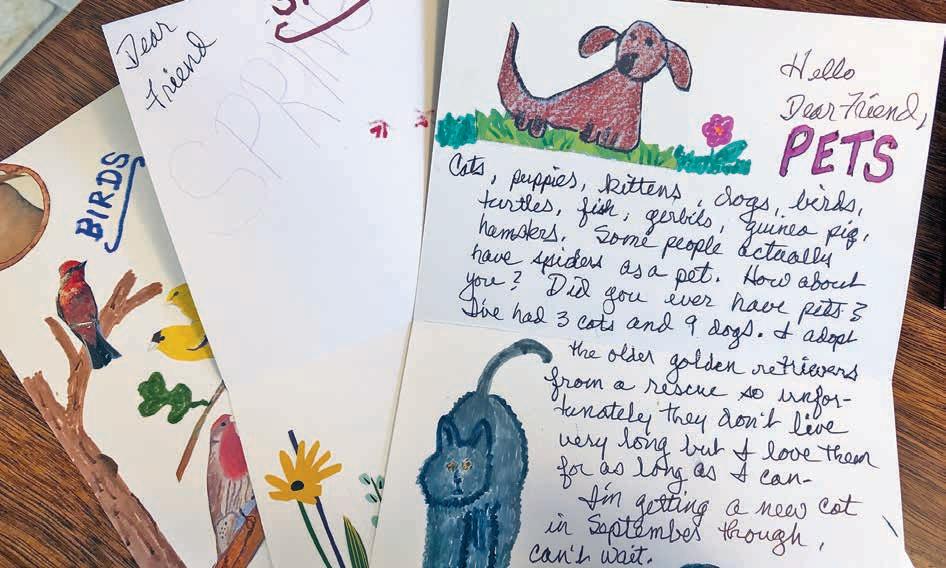 BIRDS
Dear
Friend
SPRING
Hello
Dear Friend,
PETS
Cats, puppies, kittens, dogs, birds,
turtles, fish, gerbils, guinea pig,
hamsters. Some people actually
have spiders as a pet. How about
you? Did you ever have pets?
I've had 3 cats and 9 dogs. I adopt
the older golden retrievers
from a rescue so unfor-
tunately they don't live
very long but I love them
for as long as I can-
I'm getting a new cat
in September though,
can't wait.